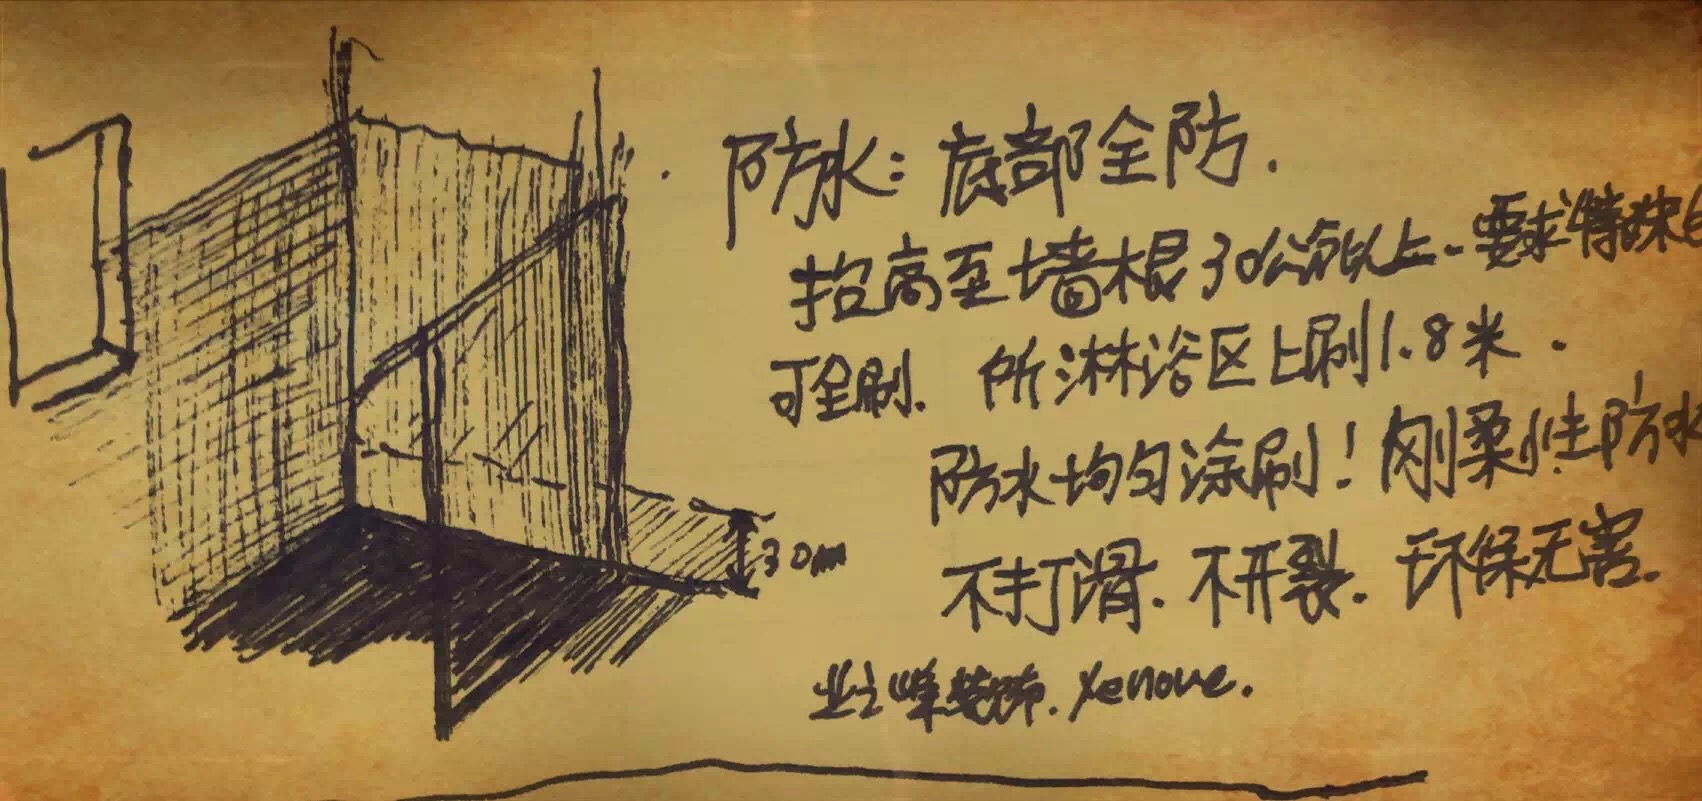 防水：底部全防.
抬高至墙根30公分以上-要求特殊
可全刷. 所淋浴区上刷1.8米.
防水均匀涂刷！刚柔性防水
不打滑. 不开裂. 环保无害.
30m
业之峰装饰. xenove.